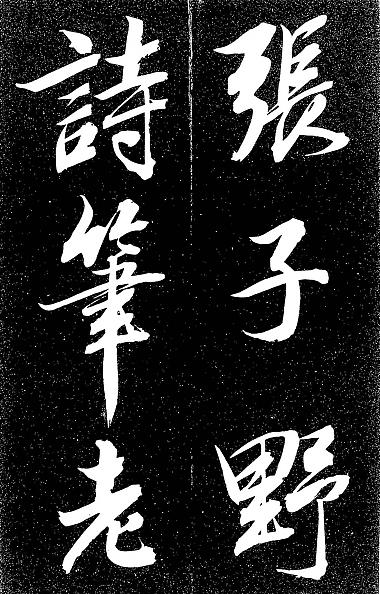 張子野
詩筆老